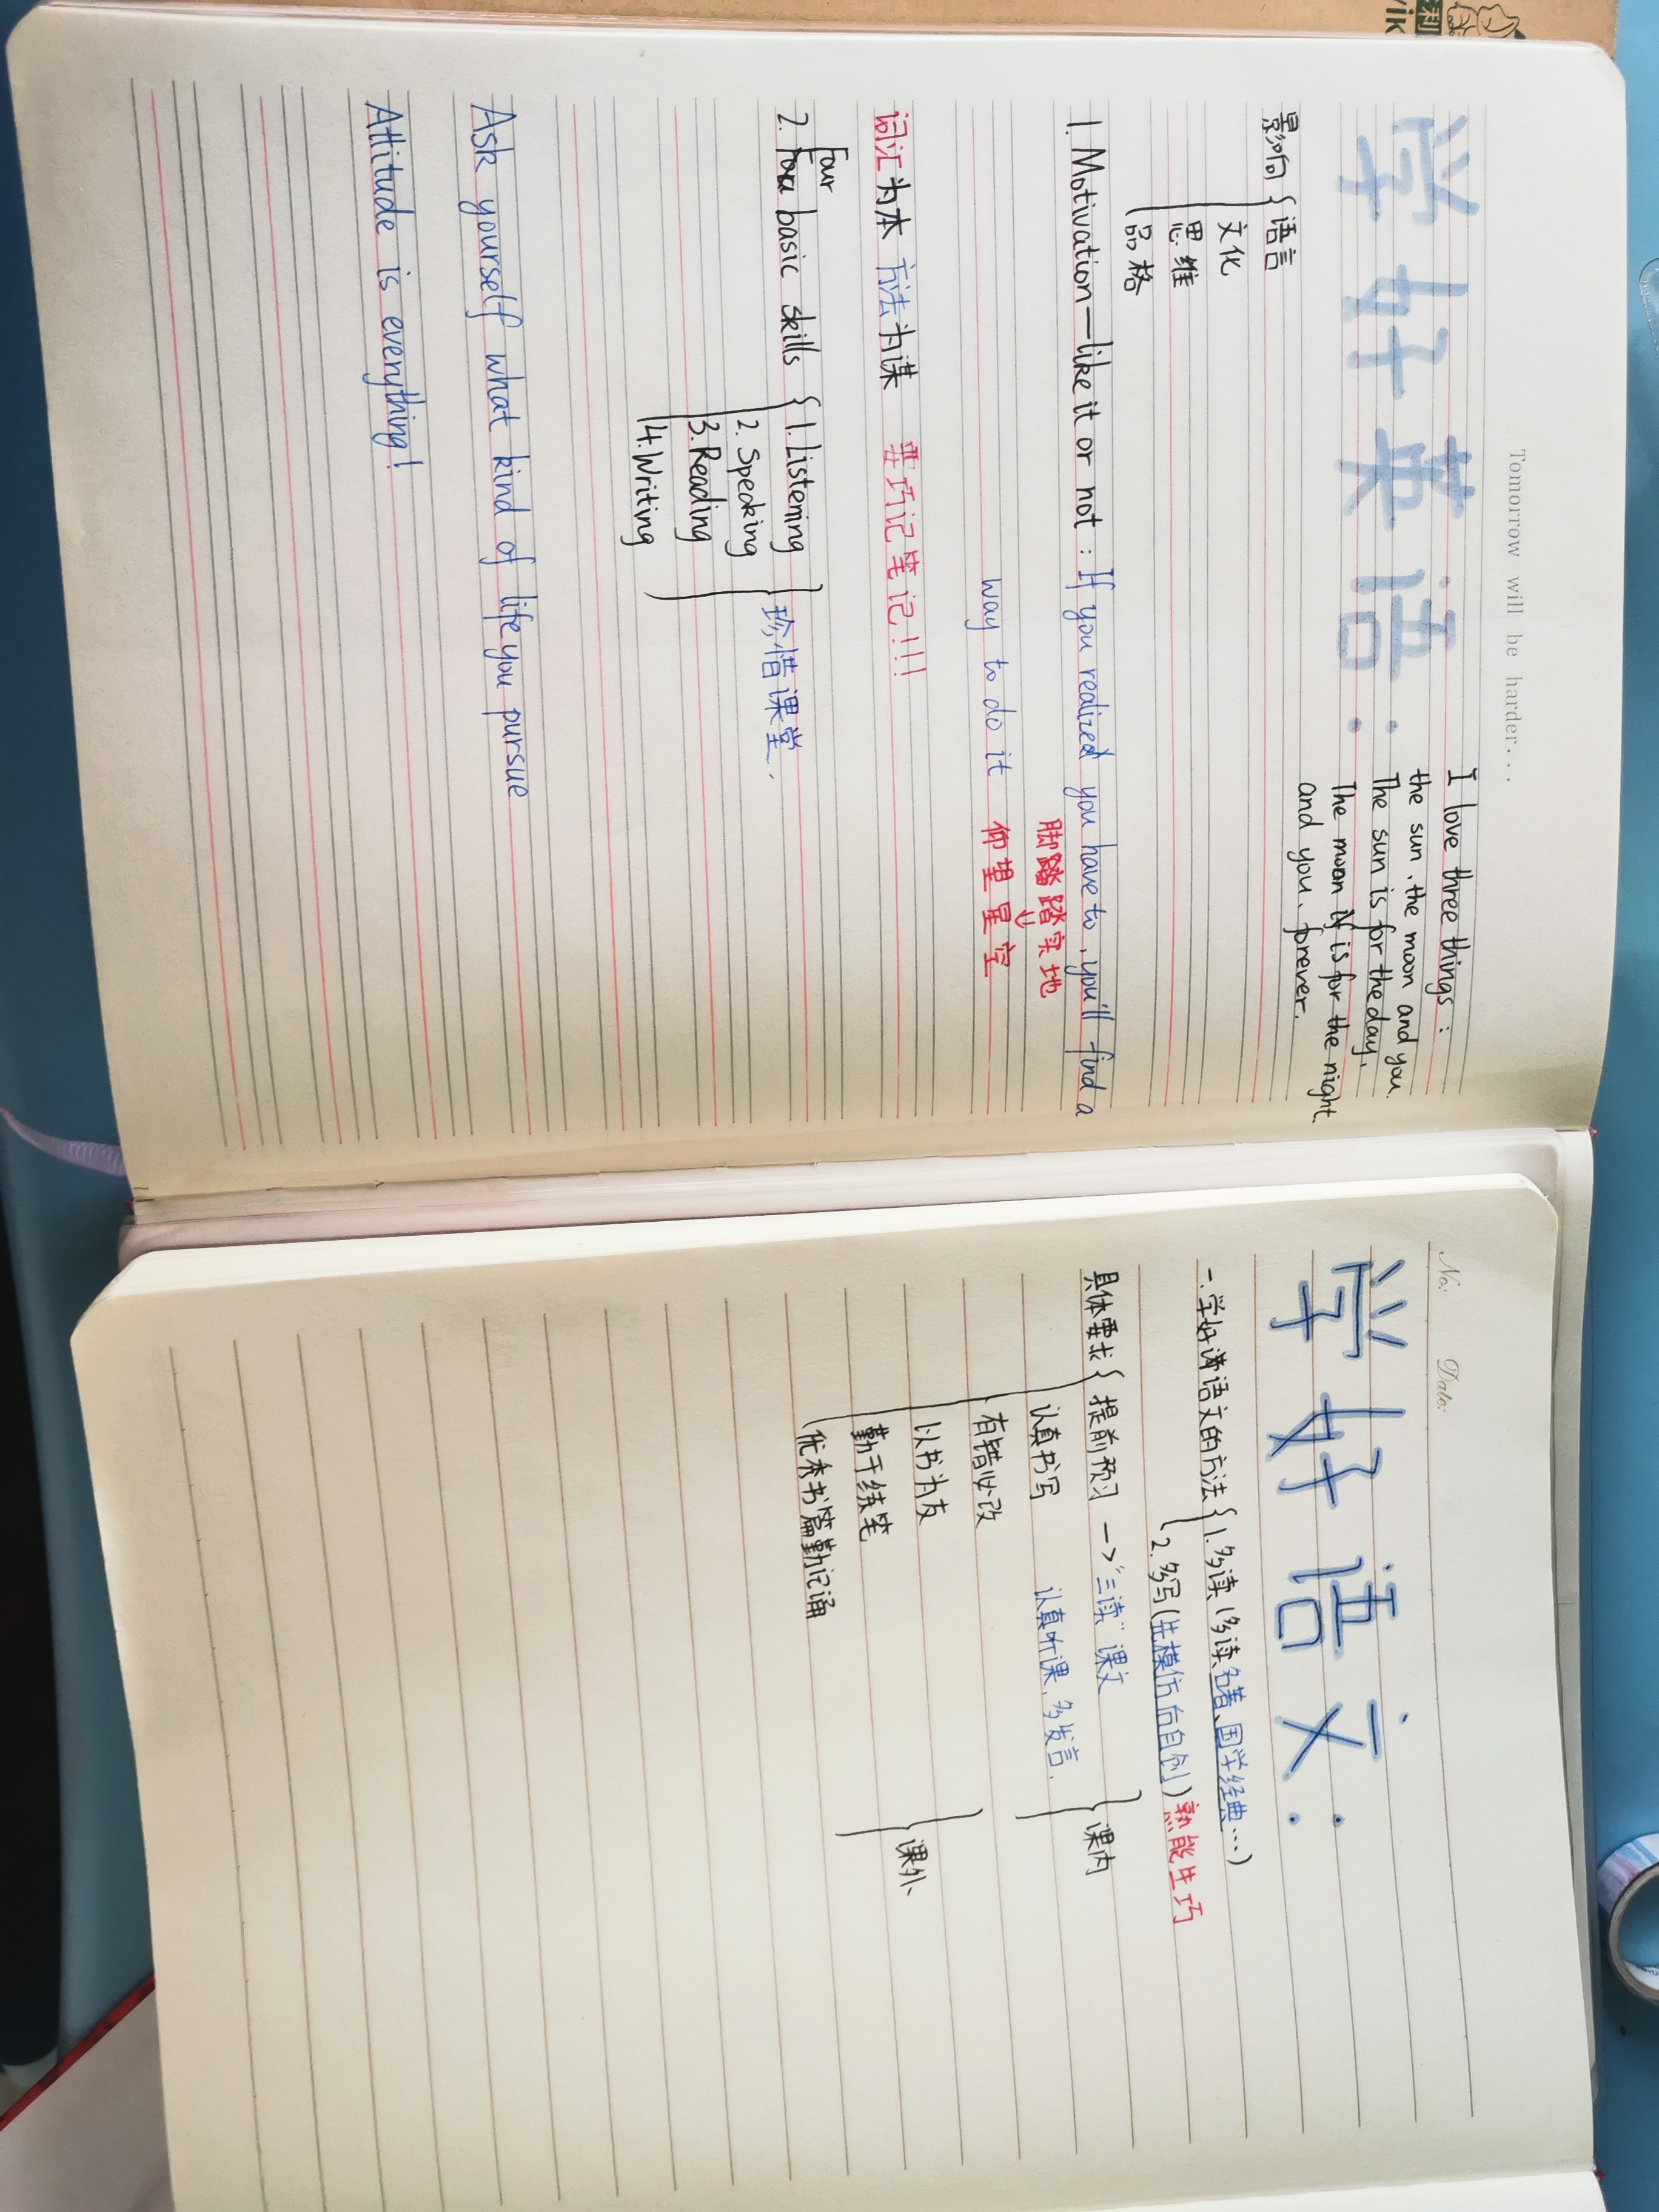 Tomorrow will be harder...
学好英语:
I love three things:
the sun, the moon and you.
The sun is for the day,
The moon is for the night
and you, forever.
影响 { 语言
文化
思维
品格
1. Motivation—like it or not: If you realized you have to, you'll find a
way to do it
脚踏踏实地
仰望星空
词汇为本 方法为谋 要巧记笔记!!!
Four
2. basic skills { 1. Listening
2. Speaking
3. Reading
4. Writing
} 珍惜课堂.
Ask yourself what kind of life you pursue
Attitude is everything!
No: Date:
学好语文:
一.学好语文的方法 { 1.多读(多读名著、国学经典...)
2.多写(先模仿后自创)熟能生巧
具体要求 { 提前预习 —>"三读"课文
认真书写 认真听课,多发言.
} 课内
有错必改
以书为友
勤于练笔
} 课外
优秀书篇勤记诵